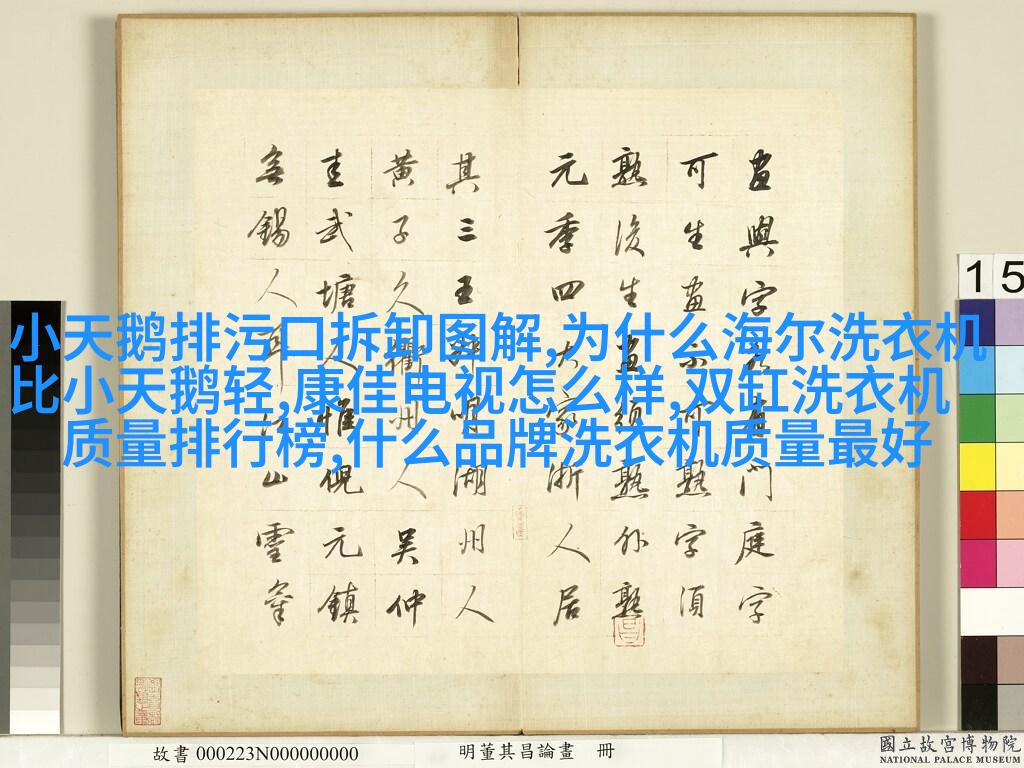 小天鹅排污口拆卸图解,为什么海尔洗衣机
比小天鹅轻,康佳电视怎么样,双缸洗衣机
质量排行榜,什么品牌洗衣机质量最好
畫與字各有門庭字
可生畫不可熟字須
熟後生畫須熟外熟
元季四大家浙人居
其三王叔明湖州人
黃子久衢州人吳仲
圭武塘人惟倪元鎮
無錫人耳江山靈氣
15
故書 000223N000000000
明董其昌論畫 冊
國立故宮博物院
NATIONAL PALACE MUSEUM